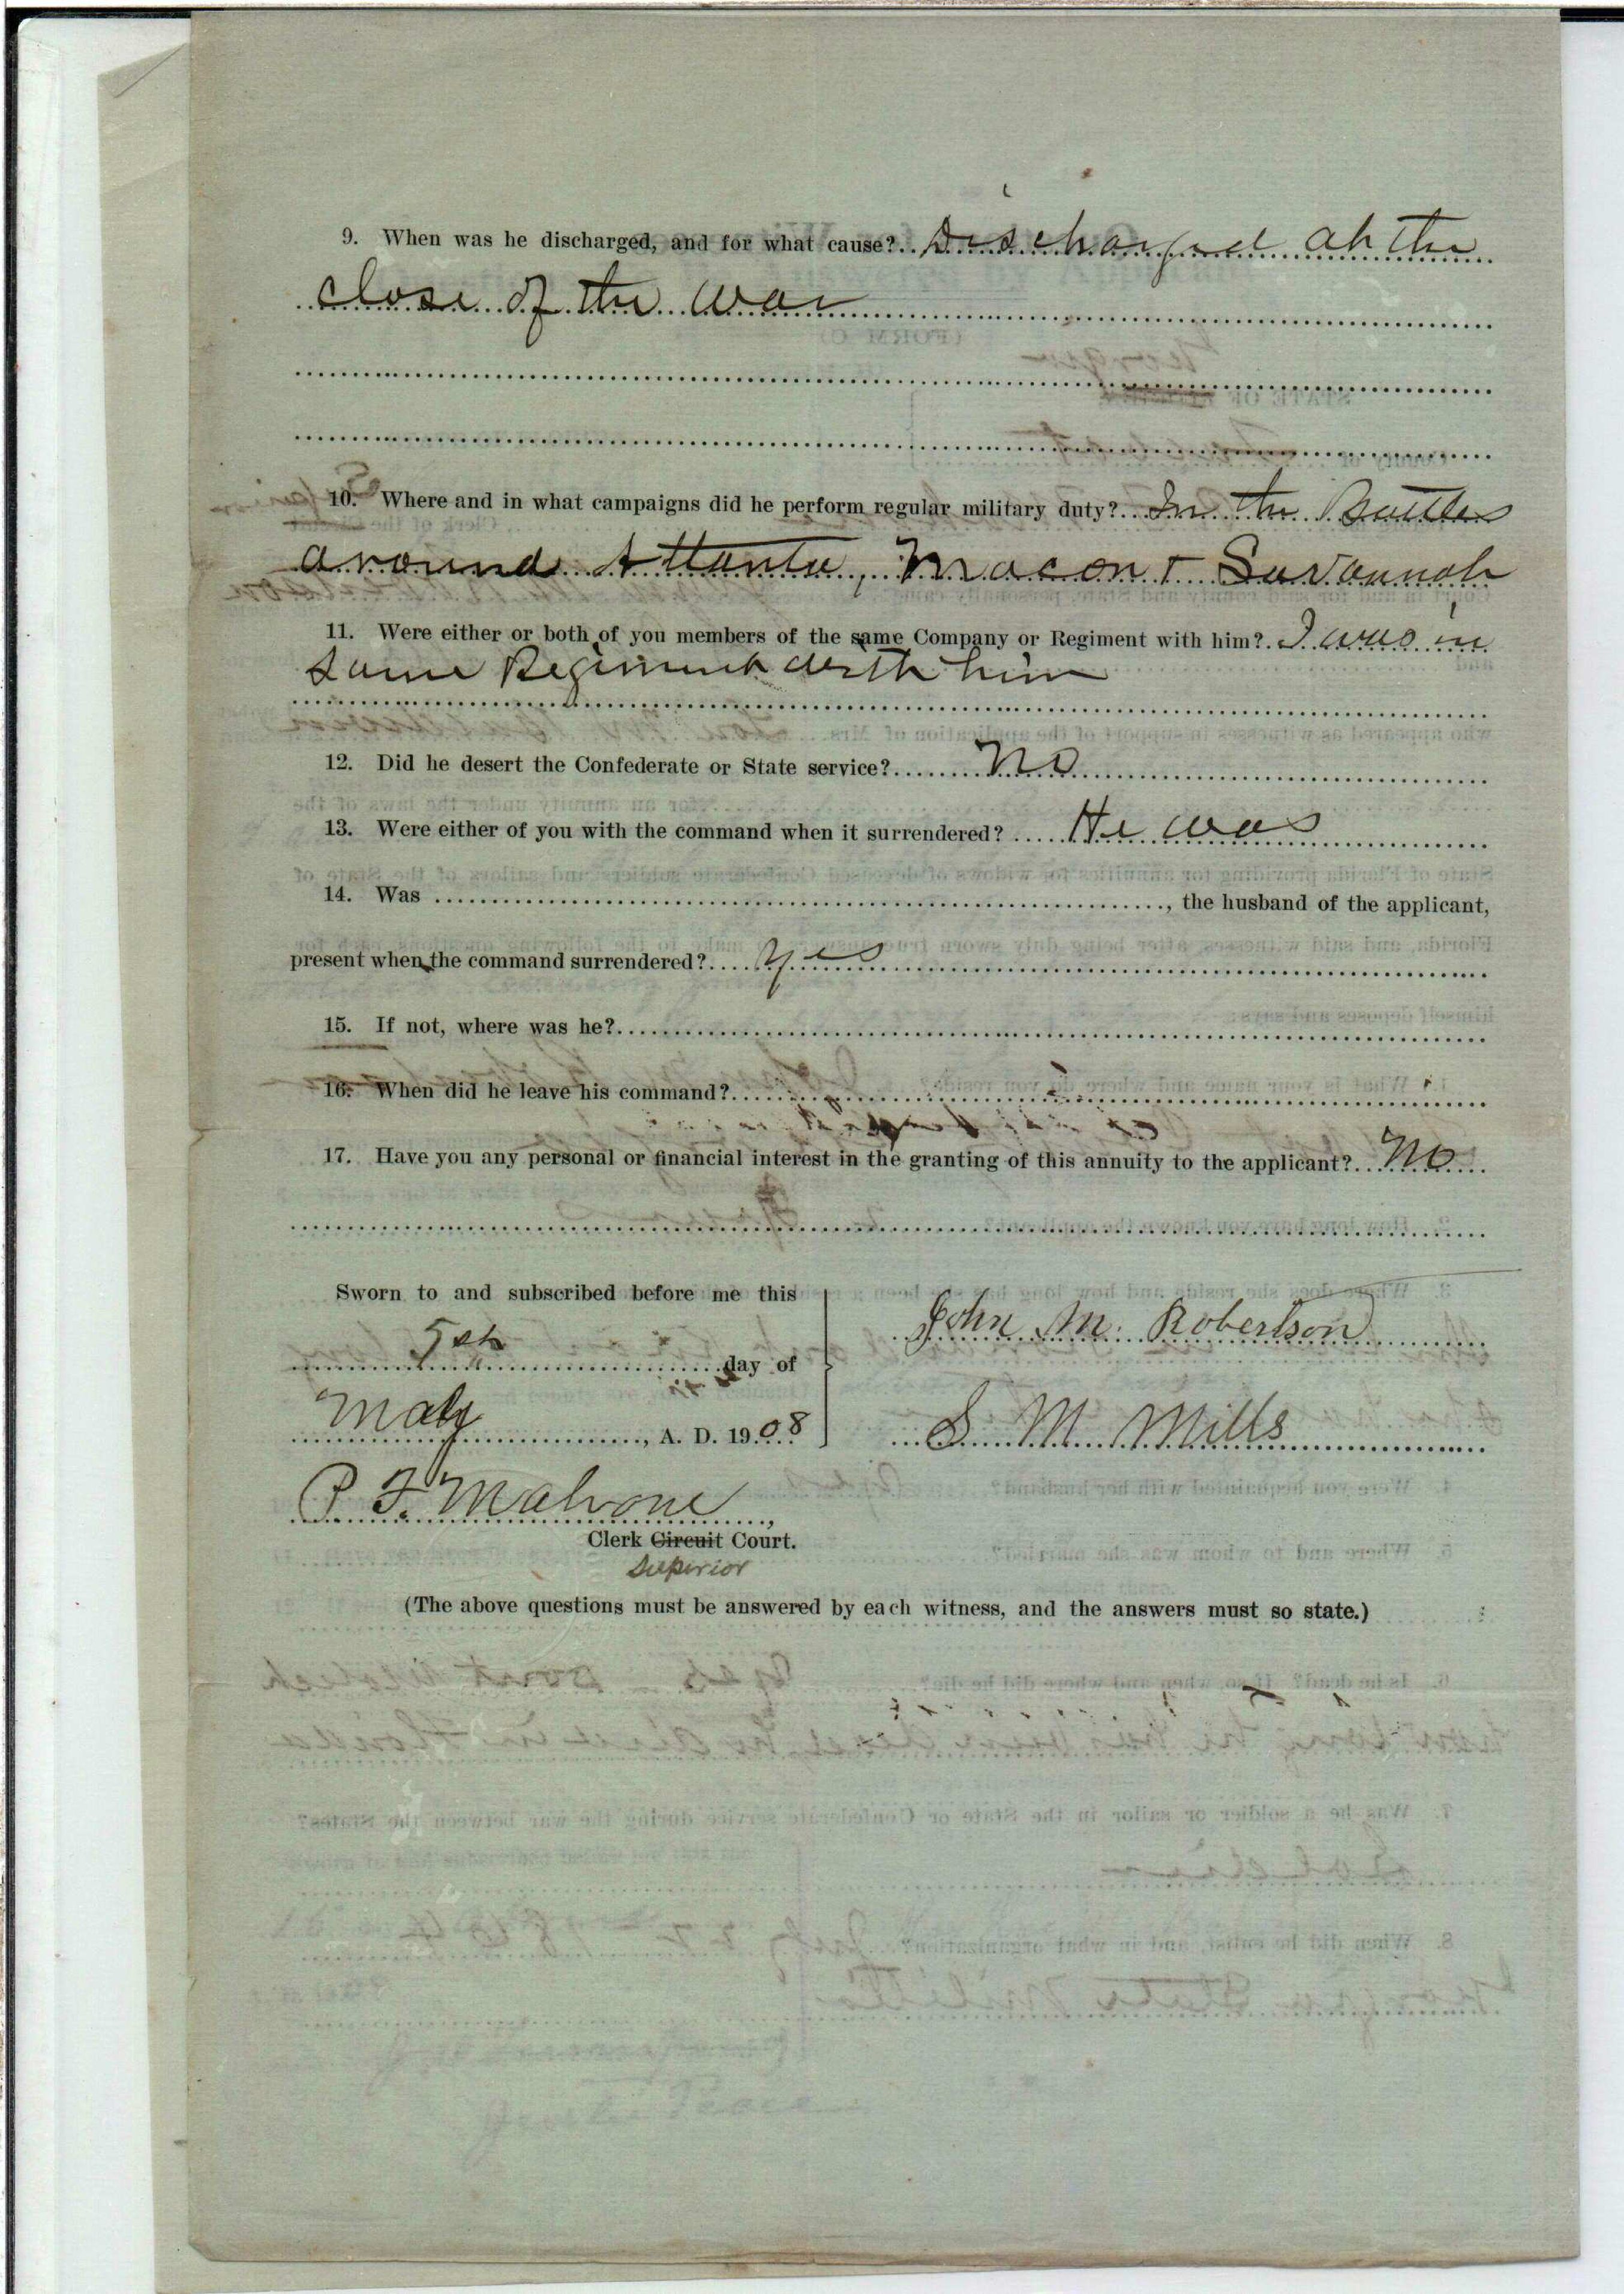 9. When was he discharged, and for what cause? Discharged at the
close of the war
10. Where and in what campaigns did he perform regular military duty? In the Battles
around Attlanta, Macon & Savannah
11. Were either or both of you members of the same Company or Regiment with him? I was in
Same Regiment with him
12. Did he desert the Confederate or State service? No
13. Were either of you with the command when it surrendered? He was
14. Was , the husband of the applicant,
present when the command surrendered? Yes
15. If not, where was he?
16. When did he leave his command?
17. Have you any personal or financial interest in the granting of this annuity to the applicant? No
Sworn to and subscribed before me this
5th day of
John M. Robertson
May, A. D. 1908
S. M. Mills
P. F. Malvone,
Clerk Circuit Court.
Superior
(The above questions must be answered by each witness, and the answers must so state.)